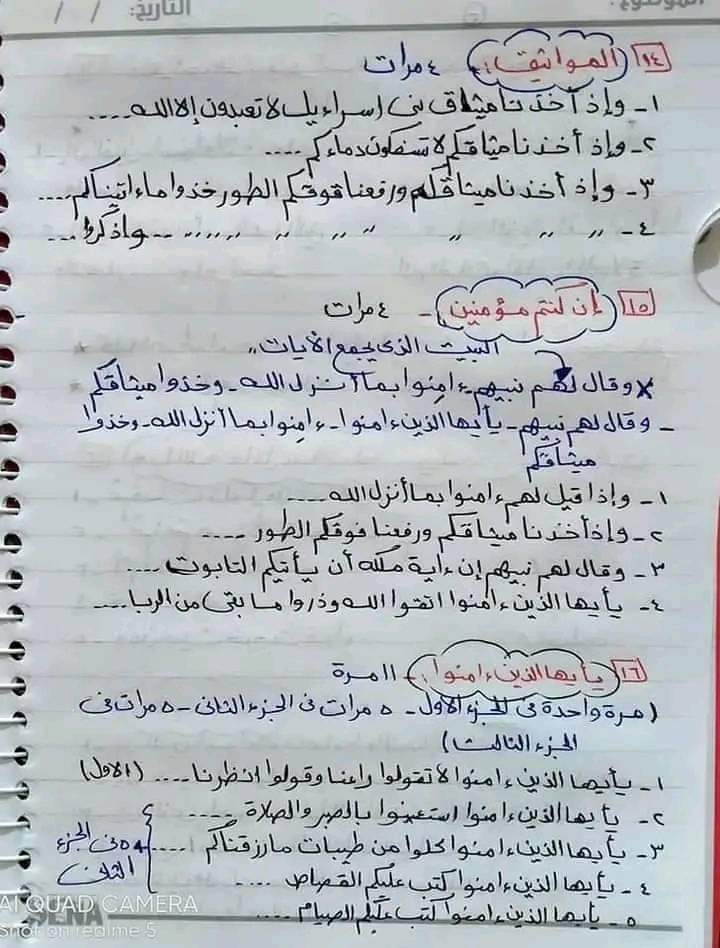 الموضوع:
التاريخ: / /
١٤ المواثيق: ٤ مرات
١- وإذ أخذنا ميثاق بنى إسراءيل لا تعبدون إلا الله ....
٢- وإذ أخذنا ميثاقكم لا تسفكون دماءكم ....
٣- وإذ أخذنا ميثاقكم ورفعنا فوقكم الطور خذوا ما ءاتيناكم ....
٤- // // // // // ,,,,,, ... واذكروا ...
١٥ إن كنتم مؤمنين:- ٤ مرات
البيت الذى يجمع الآيات ,,
* وقال لهم نبيهم - ءامنوا بما أنزل الله - وخذوا ميثاقكم *
- وقال لهم نبيهم - يأيها الذين ءامنوا - ءامنوا بما أنزل الله - وخذوا
ميثاقكم
١- وإذا قيل لهم ءامنوا بما أنزل الله ....
٢- وإذ أخذنا ميثاقكم ورفعنا فوقكم الطور ....
٣- وقال لهم نبيهم إن ءاية ملكه أن يأتيكم التابوت ....
٤- يأيها الذين ءامنوا اتقوا الله وذروا ما بقى من الربا ....
١٦ يأيها الذين ءامنوا:- ١١ مرة
(مرة واحدة فى الجزء الأول - ٥ مرات فى الجزء الثانى - ٥ مرات فى
الجزء الثالث)
١- يأيها الذين ءامنوا لا تقولوا راعنا وقولوا انظرنا .... (الأول)
٢- يأيها الذين ءامنوا استعينوا بالصبر والصلاة ....
٣- يأيها الذين ءامنوا كلوا من طيبات ما رزقناكم ....
٥ فى الجزء
الثانى
٤- يأيها الذين ءامنوا كتب عليكم القصاص ....
٥- يأيها الذين ءامنوا كتب عليكم الصيام ....
AI QUAD CAMERA
Shot on realme 5